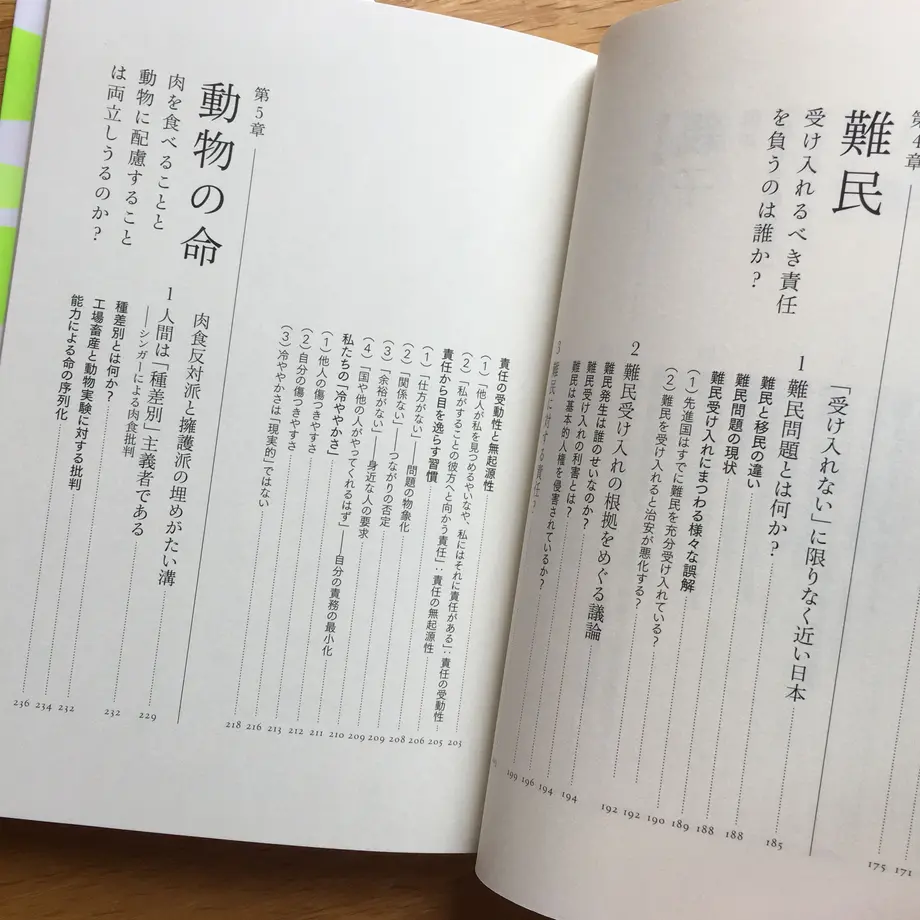 第4章
難民
受け入れるべき責任
を負うのは誰か?
171
175
「受け入れない」に限りなく近い日本 185
1 難民問題とは何か? 188
難民と移民の違い 188
難民問題の現状 189
難民受け入れにまつわる様々な誤解 190
(1)先進国はすでに難民を充分受け入れている? 192
(2)難民を受け入れると治安が悪化する? 192
2 難民受け入れの根拠をめぐる議論 194
難民発生は誰のせいなのか? 194
難民受け入れの利害とは? 196
難民は基本的人権を侵害されているか? 199
3 難民に対する責任?
責任の受動性と無起源性 203
(1)「他人が私を見つめるやいなや、私にはそれに責任がある」:責任の受動性 205
(2)「私がすることの彼方へと向かう責任」:責任の無起源性 206
責任から目を逸らす習慣 208
(1)「仕方がない」——問題の物象化 209
(2)「関係ない」——つながりの否定 209
(3)「余裕がない」——身近な人の要求 210
(4)「国や他の人がやってくれるはず」——自分の責務の最小化 211
私たちの「冷ややかさ」 212
(1)他人の傷つきやすさ 213
(2)自分の傷つきやすさ 216
(3)冷ややかさは「現実的」ではない 218
第5章
動物の命
肉を食べることと
動物に配慮すること
は両立しうるのか?
肉食反対派と擁護派の埋めがたい溝 229
1 人間は「種差別」主義者である
——シンガーによる肉食批判 232
種差別とは何か? 232
工場畜産と動物実験に対する批判 234
能力による命の序列化 236